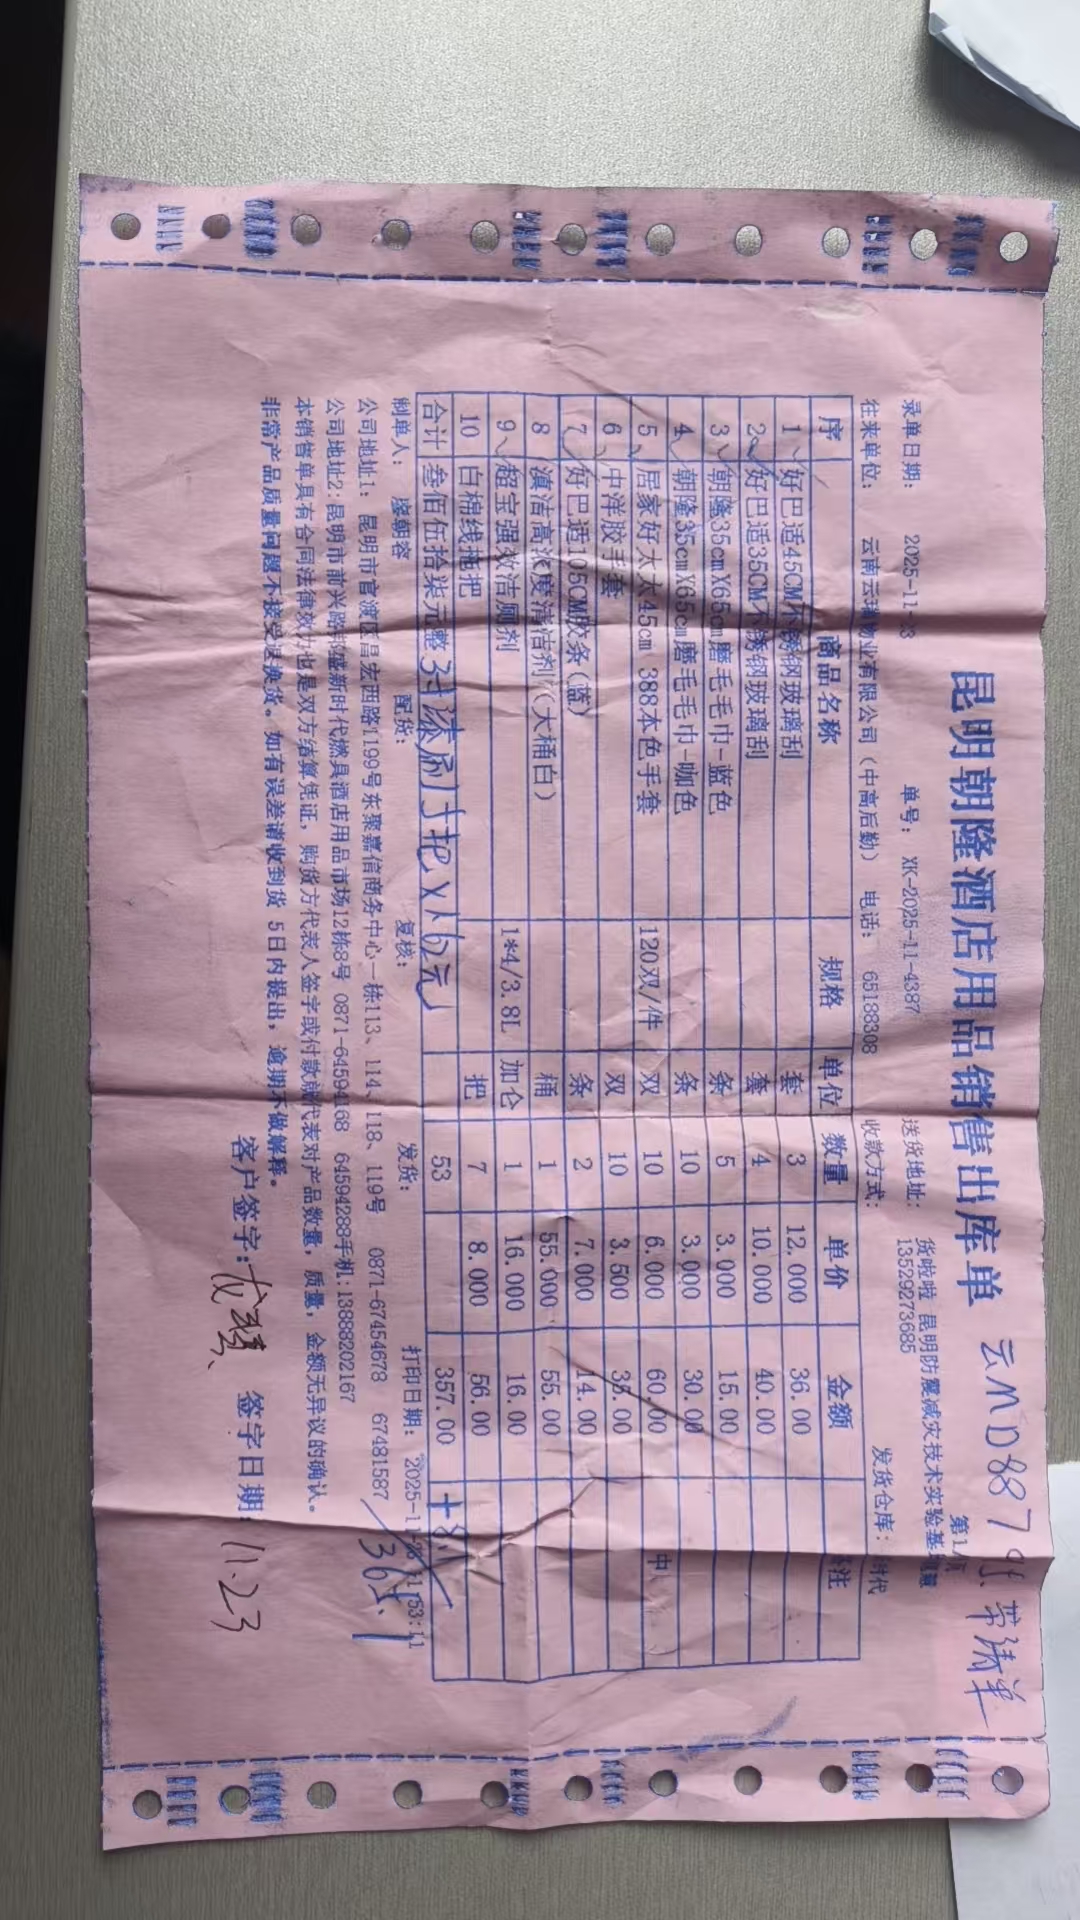 昆明朝隆酒店用品销售出库单 云MD887
带清单
第1/1
录单日期: 2025-11-23 单号: XK-2025-11-4387 送货地址: 货啦啦 昆明防震减灾技术实验基
13529273685
往来单位: 云南云瑞物业有限公司（中高后勤） 电话: 65188308 收款方式: 发货仓库: 时代
序 商品名称 规格 单位 数量 单价 金额 注
1 好巴适45CM不锈钢玻璃刮 套 3 12.000 36.00
2 好巴适35CM不锈钢玻璃刮 套 4 10.000 40.00
3 朝隆35cmX65cm磨毛毛巾-蓝色 条 5 3.000 15.00
4 朝隆35cmX65cm磨毛毛巾-咖色 条 10 3.000 30.00
5 居家好太太45cm 388本色手套 120双/件 双 10 6.000 60.00 中
6 中洋胶手套 双 10 3.500 35.00
7 好巴适105CM胶条(蓝) 条 2 7.000 14.00
8 滇洁高浓度清洁剂(大桶白) 桶 1 55.000 55.00
9 超宝强效洁厕剂 1*4/3.8L 加仑 1 16.000 16.00
10 白棉线拖把 把 7 8.000 56.00
合计 叁佰伍拾柒元整 53 357.00
制单人: 廖朝容 配货: 复核: 发货: 打印日期: 2025-11
公司地址1: 昆明市官渡区昌宏西路1199号东聚嘉信商务中心一栋113、114、118、119号 0871-67454678 67481587
公司地址2:昆明市前兴路邦盛新时代燃具酒店用品市场12栋8号 0871-64594168 64594288手机:13888202167
本销售单具有合同法律效力也是双方结算凭证，购货方代表人签字或付款就代表对产品数量，质量，金额无异议的确认。
非常产品质量问题不接受退换货。如有误差请收到货 5日内提出，逾期不做解释。
客户签字: 签字日期: 11.23